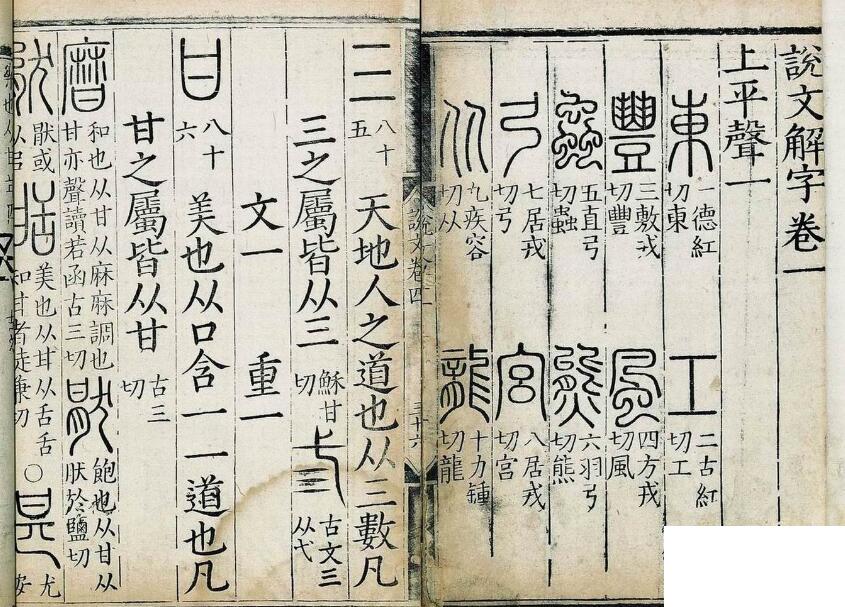 說文解字卷一
上平聲一
東 一德紅切東 工 二古紅切工
豐 三敷戎切豐 風 四方戎切風
蟲 五直弓切蟲 熊 六羽弓切熊
弓 七居戎切弓 宮 八居戎切宮
从 九疾容切从 龍 十力鍾切龍
說文卷四 三十六
三 八十五 天地人之道也从三數凡
三之屬皆从三 穌甘切 弎 古文三从弋
文一 重一
甘 八十六 美也从口含一一道也凡
甘之屬皆从甘 古三切
𤯌 和也从甘从麻麻調也甘亦聲讀若函古三切 猒 飽也从甘从肰於鹽切
猒或从㠯 甛 美也从甘从舌舌知甘者徒兼切 〇 甚 尤安